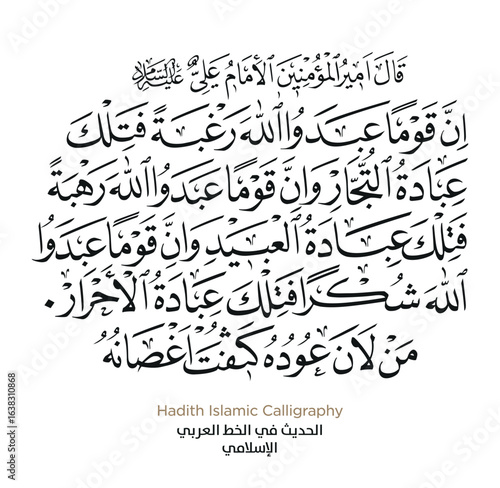 قَالَ اَمِيرُ الْمُؤْمِنِينَ الْأِمَامُ عَلِيٌّ عَلَيْهِ السَّلَام
اِنَّ قَوْمًا عَبَدُوا اللهَ رَغْبَةً فَتِلْكَ
عِبَادَةُ التُّجَّارِ وَاِنَّ قَوْمًا عَبَدُوا اللهَ رَهْبَةً
فَتِلْكَ عِبَادَةُ الْعَبِيدِ وَاِنَّ قَوْمًا عَبَدُوا
اللهَ شُكْرًا فَتِلْكَ عِبَادَةُ الْأَحْرَارِ.
مَنْ لَانَ عُودُهُ كَثُفَتْ اَغْصَانُهُ
Hadith Islamic Calligraphy
الحديث في الخط العربي
الإسلامي
Adobe Stock | #1638310868